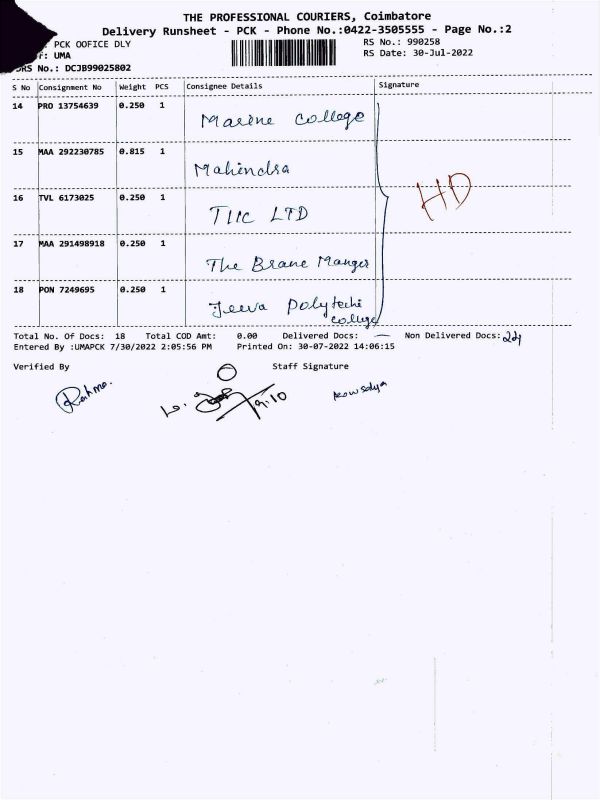 THE PROFESSIONAL COURIERS, Coimbatore
Delivery Runsheet - PCK - Phone No.:0422-3505555 - Page No.:2
: PCK OOFICE DLY RS No.: 990258
: UMA RS Date: 30-Jul-2022
DRS No.: DCJB99025802
S No Consignment No Weight PCS Consignee Details Signature
14 PRO 13754639 0.250 1 Marine College
15 MAA 292230785 0.815 1 Mahindra
HD
16 TVL 6173025 0.250 1 TIIC LTD
17 MAA 291498918 0.250 1 The Brane Manger
18 PON 7249695 0.250 1 Jeeva Polytechi
college
Total No. Of Docs: 18 Total COD Amt: 0.00 Delivered Docs: — Non Delivered Docs:
Entered By :UMAPCK 7/30/2022 2:05:56 PM Printed On: 30-07-2022 14:06:15
Verified By Staff Signature
9.10 kowsalya